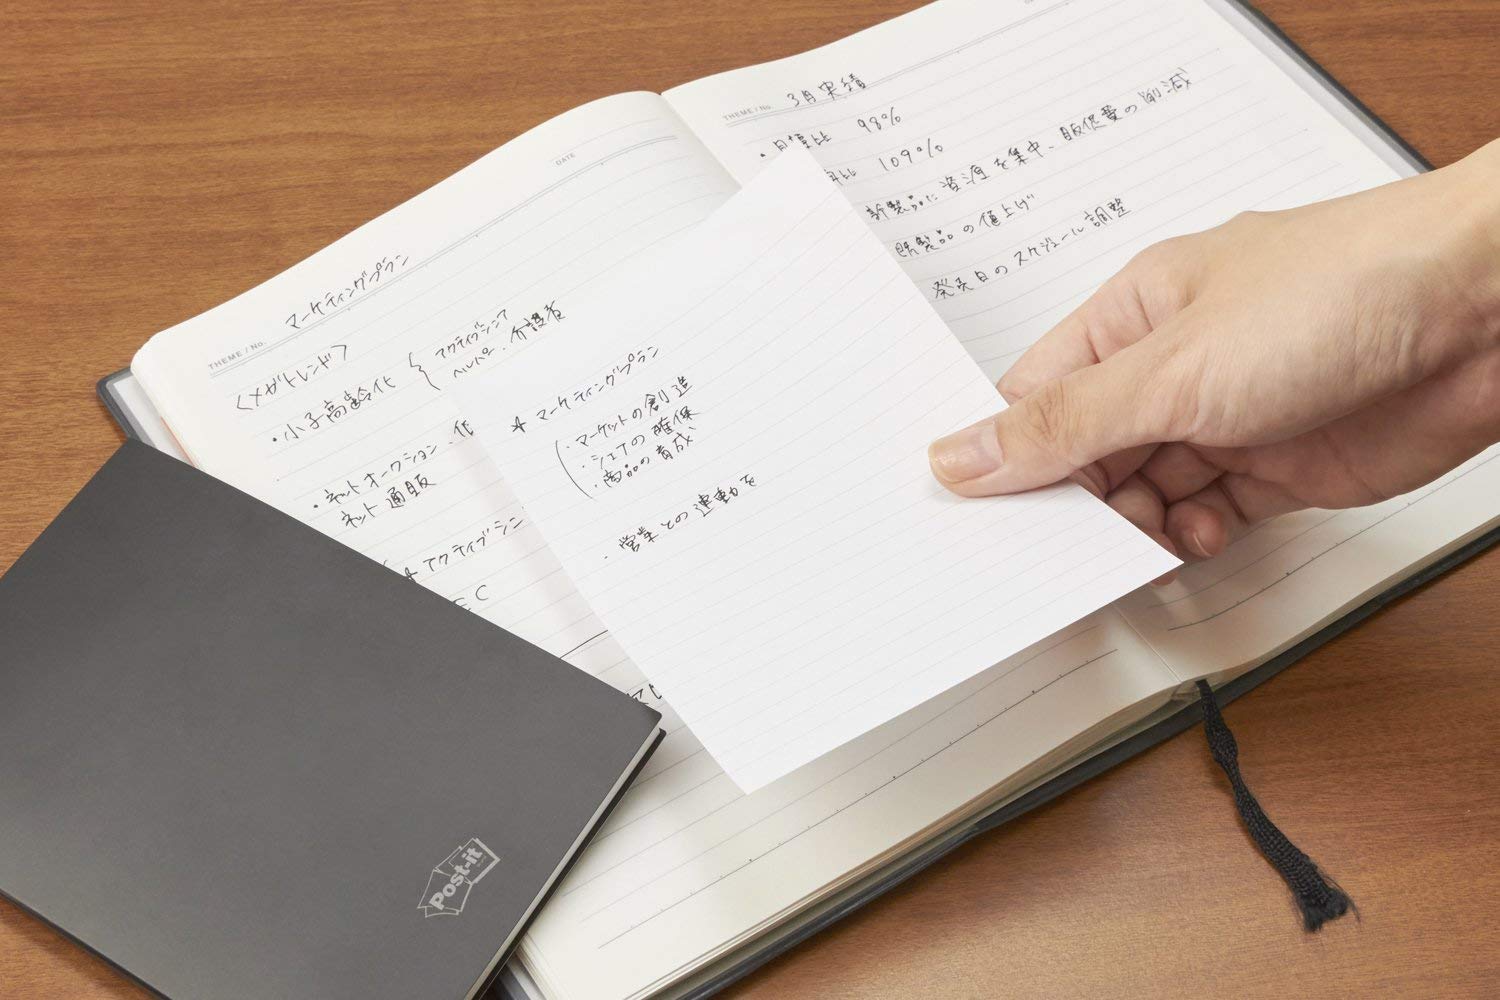 THEME / No.
マーケティングプラン
DATE
〈メガトレンド〉
・小子高齢化
アクティブシニア
ヘルパー・介護者
・ネットオークション・
ネット通販
アクティブシニ
EC
THEME / No.
3月実績
・目標比 98%
月比 109%
新製品に資源を集中、販促費の削減
既製品の値上げ
発売日のスケジュール調整
☆マーケティングプラン
・マーケットの創造
・シェアの確保
・商品の育成
・営業との連動を
Post-it